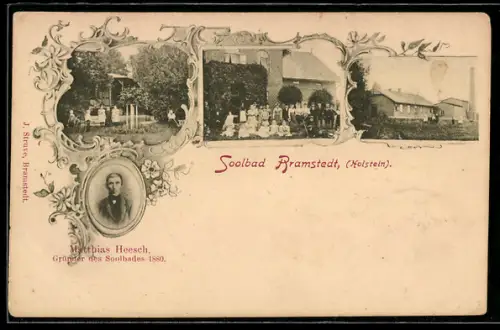 Soolbad Bramstedt, (Holstein).
J. Struve, Bramstedt.
Matthias Heesch,
Gründer des Soolbades 1880.